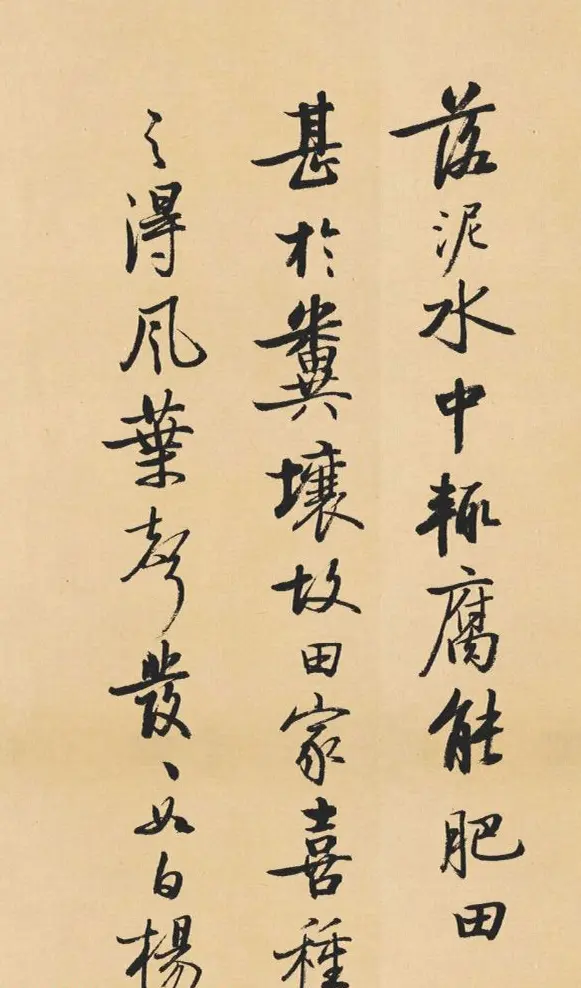 落泥水中輙腐能肥田
甚於糞壤故田家喜種
之得風葉聲發〻如白楊